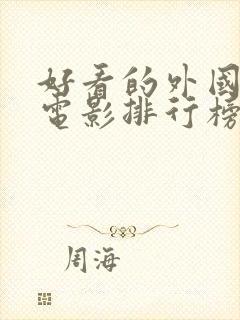 好看的外國
電影排行榜
周海